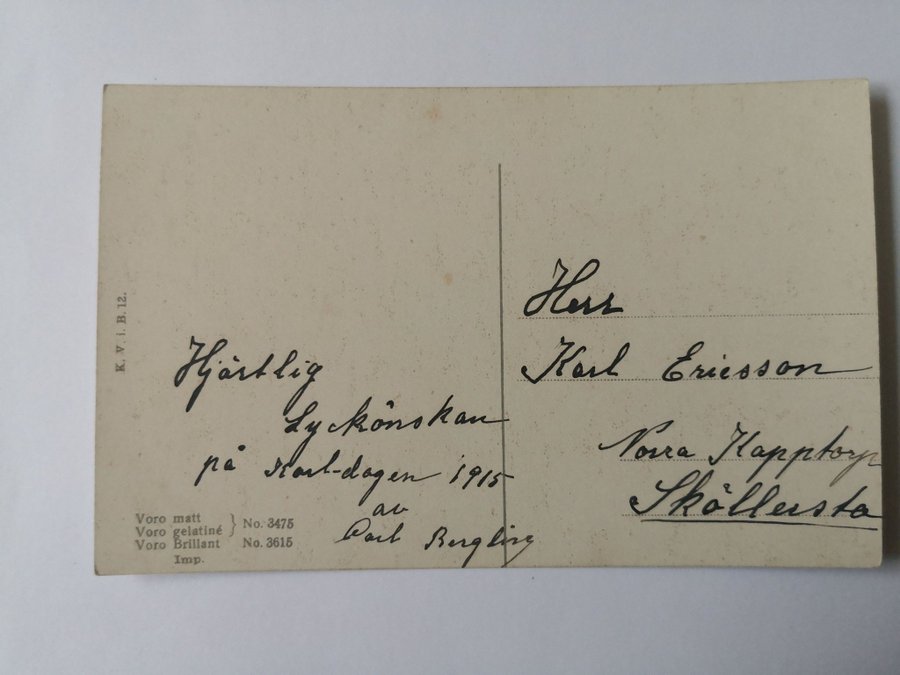 K. V. i. B. 12.
Hjärtlig
Lyckönskan
på Karl-dagen 1915
av
Carl Bergling
Voro matt
Voro gelatiné } No. 3475
Voro Brillant No. 3615
Imp.
Herr
Karl Ericsson
Norra Kapptorp
Sköllersta